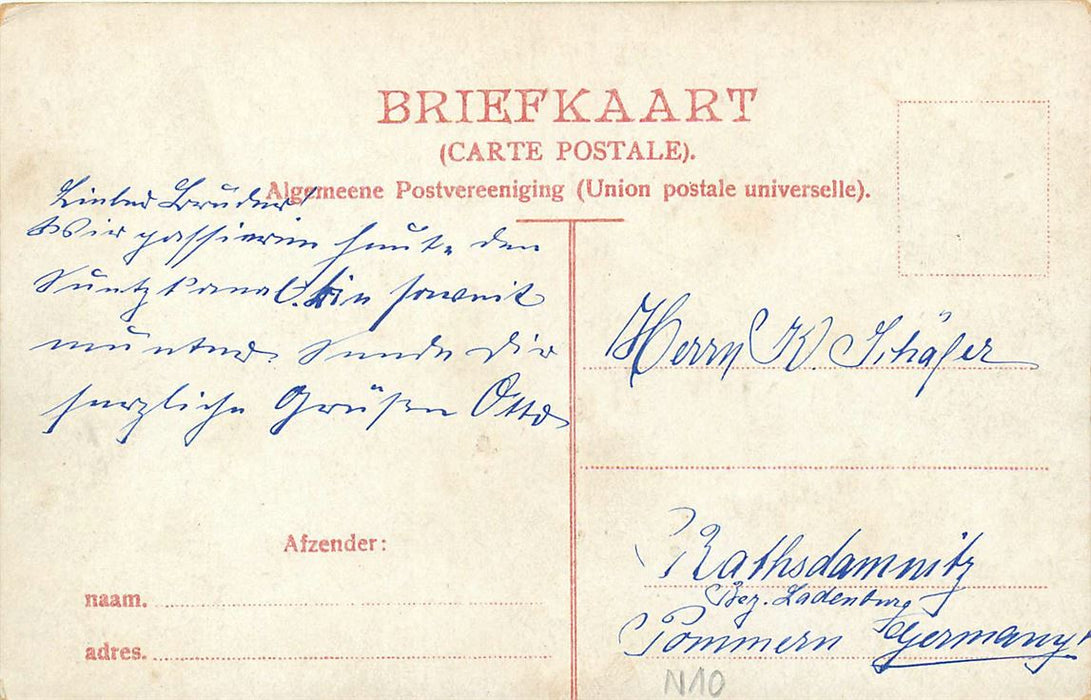 BRIEFKAART
(CARTE POSTALE).
Algemeene Postvereeniging (Union postale universelle).
Lieber Bruder!
Wir passieren heute den
Suetzkanal. Bin soweit
munter. Sende Dir
herzliche Grüßen Otto
Herrn K. Schäfer
Rathsdamnitz
Bez. Ladenburg
Pommern Germany
Afzender:
naam.
adres.
N10